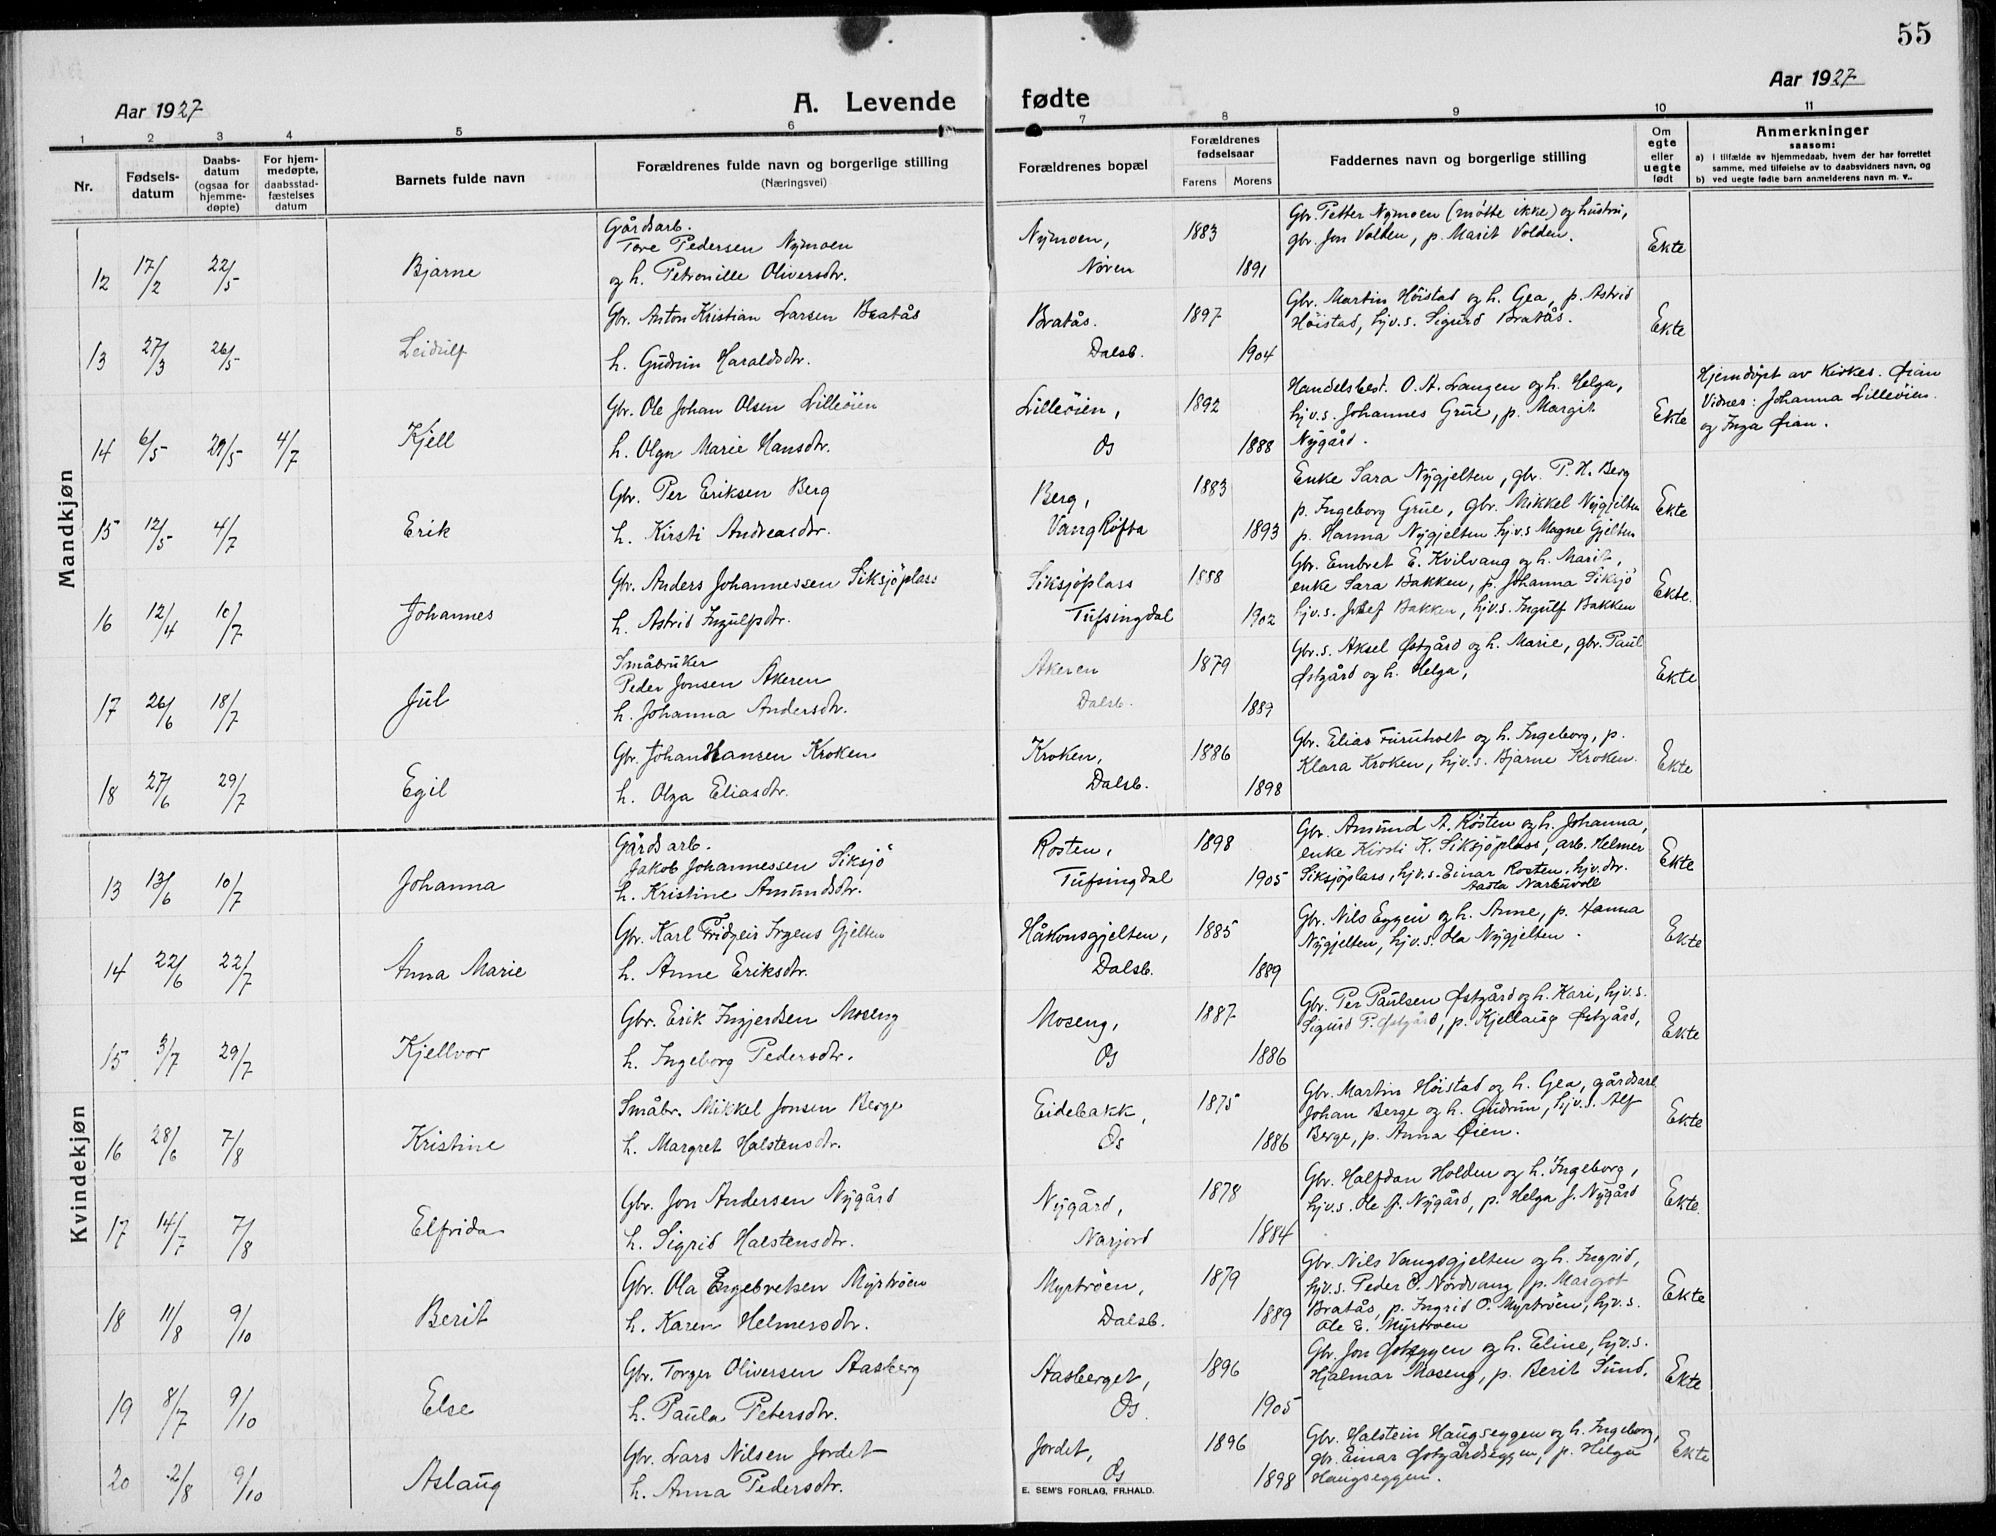 55
Aar 1927
A. Levende fødte
Aar 1927
1 2 3 4 5 6 7 8 9 10 11
Nr.
Fødsels-
datum
Daabs-
datum
(ogsaa for
hjemme-
døpte)
For hjem-
medøpte,
daabsstad-
fæstelses
datum
Barnets fulde navn
Forældrenes fulde navn og borgerlige stilling
(Næringsvei)
Forældrenes bopæl
Forældrenes
fødselsaar
Farens Morens
Faddernes navn og borgerlige stilling
Om
egte
eller
uegte
født
Anmerkninger
saasom:
a) I tilfælde av hjemmedaab, hvem der har forrettet
samme, med tilføielse av to daabsvidners navn, og
b) ved uegte fødte barn anmelderens navn m. v..
Mandkjøn
12 17/2 22/5 Bjarne
Gårdsarb.
Tore Pedersen Nymoen
og h. Petronille Oliversdtr.
Nymoen,
Nören
1883
1891
Gbr. Petter Nymoen (møtte ikke) og hustru,
gbr. Jon Volden, p. Marit Volden.
Ekte
13 27/3 26/5 Leidulf
Gbr. Anton Kristian Larsen Bratås
h. Gudrun Haraldsdtr.
Bratås.
Dalsb.
1897
1904
Gbr. Martin Höistad og h. Gea, p. Astrid
Höistad, hjv.s. Sigurd Bratås.
Ekte
14 6/5 29/5 4/7 Kjell
Gbr. Ole Johan Olsen Lilleöien
h. Olga Marie Hansdtr.
Lilleöien,
Os
1892
1888
Handelsbest. O. A. Langen og h. Helga,
hjv.s. Johannes Grue, p. Margit
Nygård.
Ekte
Hjemdöpt av Kirkes. Øian
Vidner: Johanna Lilleöien
og Inga Øian.
15 12/5 4/7 Erik
Gbr. Per Eriksen Berg
h. Kirsti Andreasdtr.
Berg,
VangRöfta
1883
1893
Enke Sara Nygjelten, gbr. P. H. Berg
p. Ingeborg Grue, gbr. Mikkel Nygjelten
p. Hanna Nygjelten hjv.s Magne Gjelten
Ekte
16 12/4 10/7 Johannes
Gbr. Anders Johannessen Siksjöplass
h. Astrid Ingulfsdtr.
Siksjöplass
Tufsingdal
1888
1902
Gbr. Embret E. Kvilvang og h. Marit,
enke Sara Bakken, p. Johanna Siksjö
hjv.s. Josef Bakken, hjv.s. Ingulf Bakken
Ekte.
17 26/6 18/7 Jul
Småbruker
Peder Jonsen Akeren
h. Johanna Andersdtr.
Akeren
Dalsb.
1879
1889
Gbr.s. Aksel Østgård og h. Marie, gbr. Paul
Østgård og h. Helga,
Ekte
18 27/6 29/7 Egil
Gbr. Johan Hansen Kroken
h. Olga Eliasdtr.
Kroken,
Dalsb.
1886
1898
Gbr. Elias Furuholt og h. Ingeborg, p.
Klara Kroken, hjv.s. Bjarne Kroken.
Ekte
Kvindekjøn
13 13/6 10/7 Johanna
Gårdsarb.
Jakob Johannessen Siksjö
h. Kristine Amundsdtr.
Rosten,
Tufsingdal
1898
1905
Gbr. Amund A. Rösten og h. Johanna,
enke Kirsti K. Siksjöplass, arb. Helmer
Siksjöplass, hjv.s. Einar Rosten, hjv.dtr.
Aasta Narbuvoll
Ekte
14 22/6 22/7 Anna Marie
Gbr. Karl Fridgeir Irgens Gjelten
h. Anne Eriksdtr.
Håkonsgjelten,
Dalsb.
1885
1889
Gbr. Nils Eggen og h. Anne, p. Hanna
Nygjelten, hjv.s. Ola Nygjelten.
Ekte
15 3/7 29/7 Kjellvor
Gbr. Erik Ingjerdsen Moseng
h. Ingeborg Pedersdtr.
Moseng,
Os
1887
1886
Gbr. Per Paulsen Østgård og h. Kari, hjv.s.
Sigurd P. Østgård, p. Kjellaug Østgård,
Ekte
16 28/6 7/8 Kristine
Småbr. Mikkel Jonsen Berge
h. Margret Halstensdtr.
Eidebakk,
Os
1875
1886
Gbr. Martin Höistad og h. Gea, gårdsarb
Johan Berge og h. Gudrun, hjv.s. Alf
Berge, p. Anna Øien.
Ekte
17 14/7 7/8 Elfrida
Gbr. Jon Andersen Nygård
h. Sigrid Halstensdtr.
Nygård,
Narjord
1878
1884
Gbr. Halfdan Holden og h. Ingeborg,
hjv.s. Ole J. Nygård, p. Helga J. Nygård
Ekte.
18 11/8 9/10 Berit
Gbr. Ola Engebretsen Myrtröen
h. Karen Helmersdtr.
Myrtröen,
Dalsb.
1879
1889
Gbr. Nils Vangsgjelten og h. Ingrid,
hjv.s. Peder O. Nordvang, p. Margot
Bratås, p. Ingrid O. Myrtröen, hjv.s.
Ole E. Myrtröen
Ekte
19 8/7 9/10 Else
Gbr. Torger Oliversen Aasberg
h. Paula Petersdtr.
Aasberget,
Os.
1896
1905
Gbr. Jon Østeggen og h. Eline, hjv.s.
Hjalmar Moseng, p. Berit Sund.
Ekte
20 2/8 9/10 Aslaug
Gbr. Lars Nilsen Jordet
h. Anna Pedersdtr.
Jordet,
Os
1896
1898
Gbr. Halstein Haugseggen og h. Ingeborg,
gbr. Einar Østgårdseggen, p. Helga
Haugseggen.
Ekte
E. SEM'S FORLAG, FR.HALD.